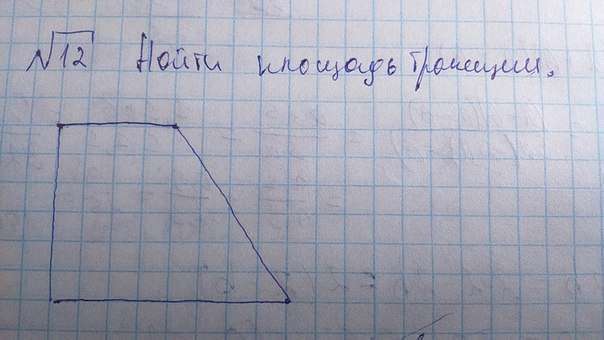 √12 Найти площадь трапеции.